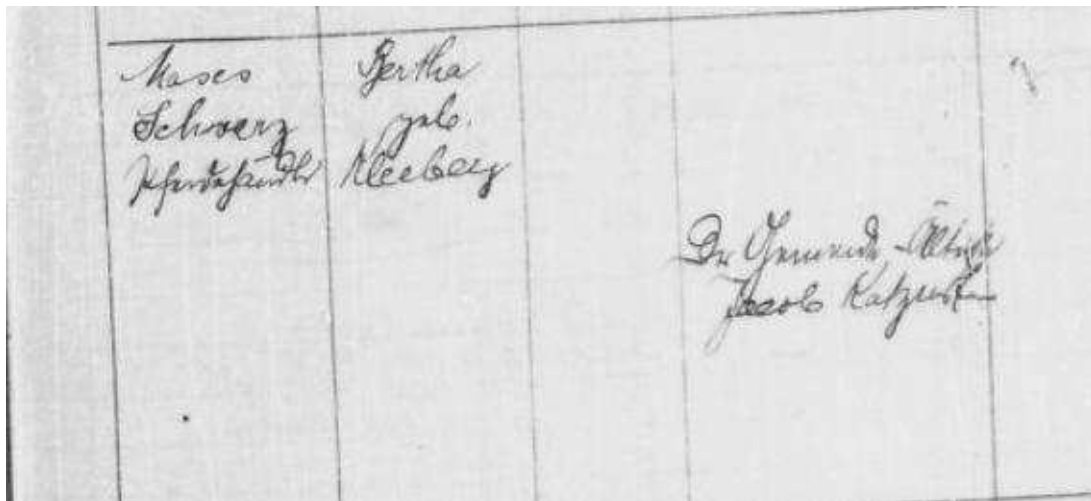 Moses
Schwerz
Pferdehändler
Bertha
geb.
Kleeberg
Der Gemeinde-Älteste
Jacob Katzenstein